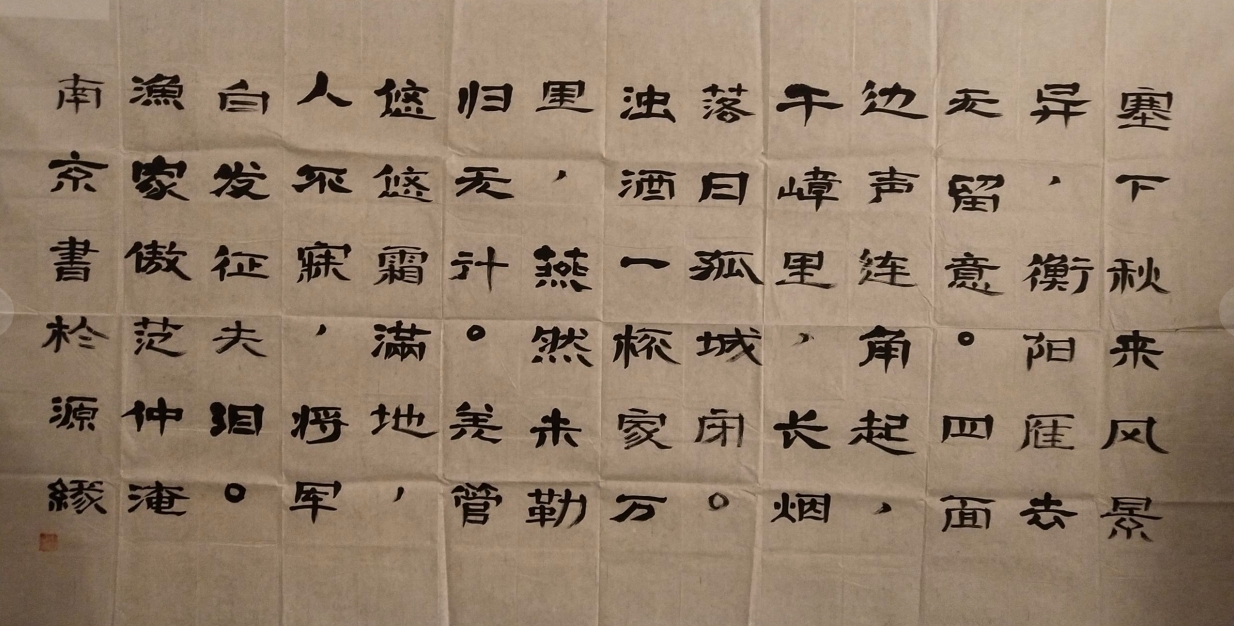 塞下秋来风景
异，衡阳雁去
无留意。四面
边声连角起，
千嶂里，长烟
落日孤城闭。
浊酒一杯家万
里，燕然未勒
归无计。羌管
悠悠霜滿地，
人不寐，将军
白发征夫泪。
漁家傲范仲淹
南京書於源緣